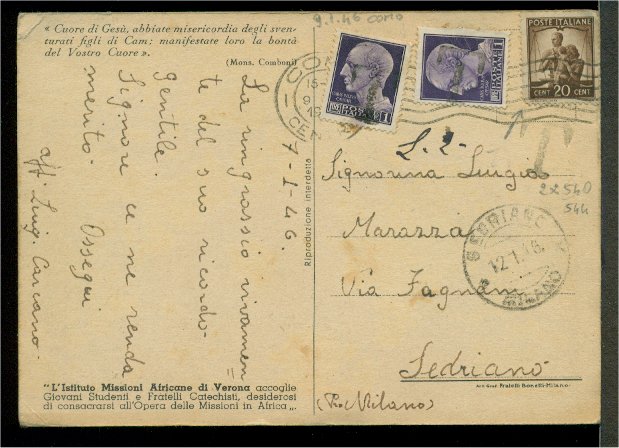 « Cuore di Gesù, abbiate misericordia degli sven-
turati figli di Cam; manifestate loro la bontà
del Vostro Cuore».
(Mons. Comboni)
9.1.46 como
7-1-46.
La ringrazio vivamen
te del suo ricordo
gentile.
Signore ce ne renda
merito.
Ossequi
aff. Luig. Carcano.
"L'Istituto Missioni Africane di Verona accoglie
Giovani Studenti e Fratelli Catechisti, desiderosi
di consacrarsi all'Opera delle Missioni in Africa„.
Riproduzione interdetta
POSTE ITALIANE
20 CENT
CENT
POSTE ITALIANE
1
1
T
L. 2-
22540
544
Signorina Luigia
Marazza
Via Fagnani
Sedriano
(Pro Milano)
SEDRIANO
12.1.46
MILANO
Arti Graf. Fratelli Bonetti-Milano